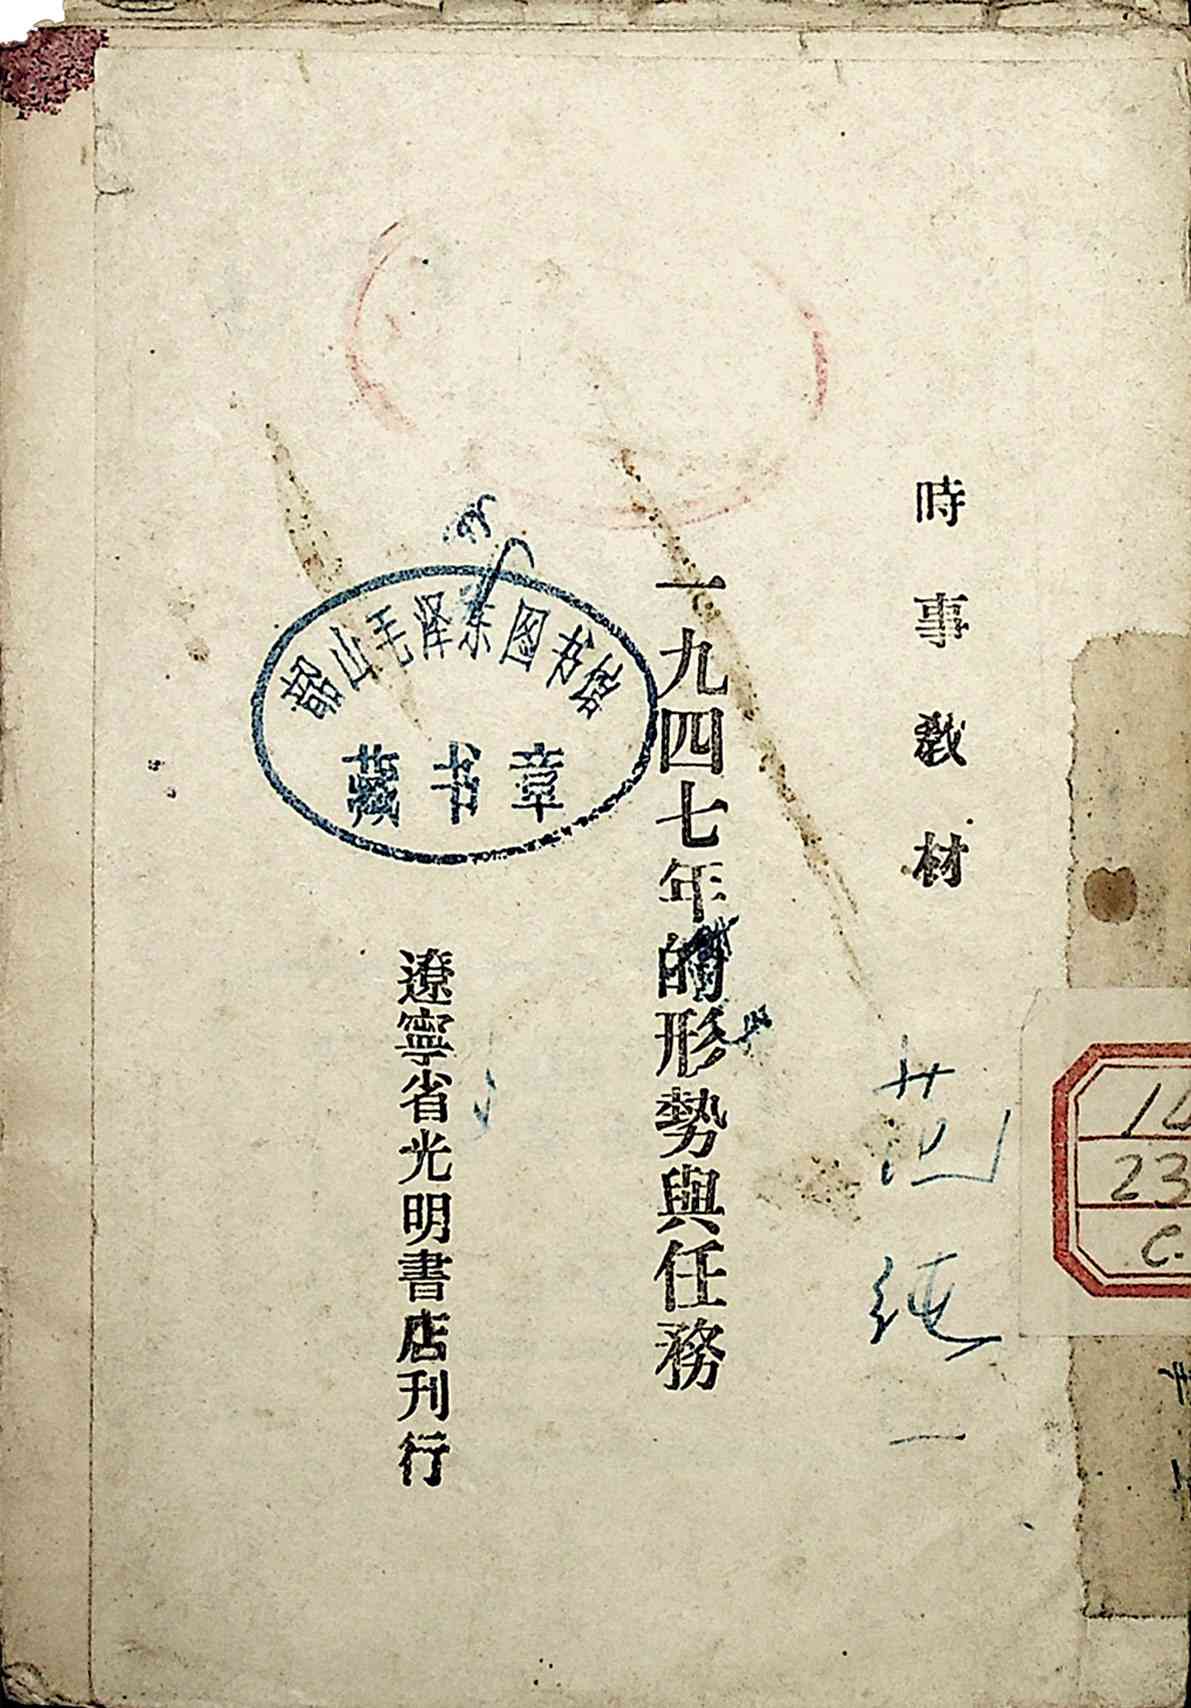 時事教材
一九四七年的形勢與任務
遼寧省光明書店刊行
韶山毛泽东图书馆
藏书章
范纯一
14
23
C.